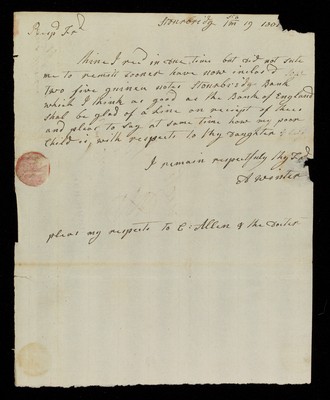 Stourbridge 1m 19 180
Resp Frd
Thine I recd in due time but did not sute
me to remitt sooner have now inclosd
two five guinea notes Stourbridge Bank
which I think as good as the Bank of England
shal be glad of a line on receipt of these
and pleas to say at same time how my poor
Child is, with respects to thy Daughter &
I remain respectfuly thy Frd
A Winter
pleas my respects to C: Allen & the Docter